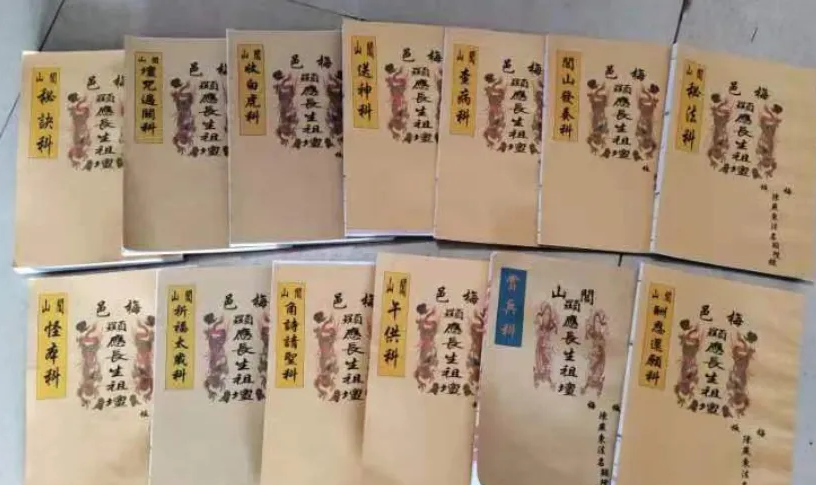 閭山
秘訣科
梅邑
顯應長生祖壇
閭山
壇咒過關科
梅邑
顯應長生祖壇
閭山
收白虎科
梅邑
顯應長生祖壇
閭山
送神科
梅邑
顯應長生祖壇
閭山
查病科
梅邑
顯應長生祖壇
閭山發奏科
梅邑
顯應長生祖壇
閭山
秘法科
梅邑
顯應長生祖壇
梅
陳廣東法名顯
閭山
怪本科
梅邑
顯應長生祖壇
閭山
祈福太歲科
梅邑
顯應長生祖壇
閭山
角詩請聖科
梅邑
顯應長生祖壇
閭山
午供科
梅邑
顯應長生祖壇
賞兵科
閭山
顯應長生祖壇
梅
陳廣東法名顯
閭山
酬恩還願科
梅邑
顯應長生祖壇
梅
陳廣東法名